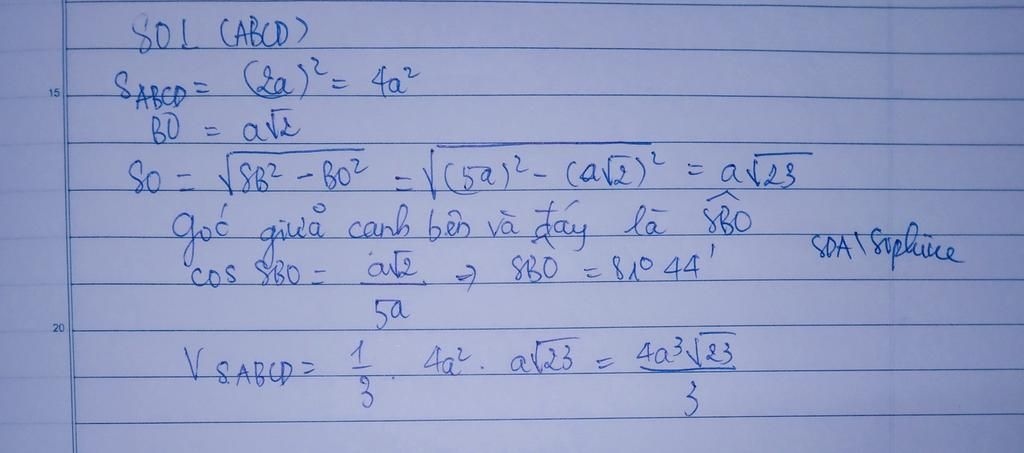 SO ⊥ (ABCD)
15
S_ABCD = (2a)² = 4a²
BO = a√2
SO = √(SB² - BO²) = √((5a)² - (a√2)²) = a√23
Góc giữa cạnh bên và đáy là SBO
cos SBO = a√2 / 5a ⇒ SBO = 81° 44'
20
V S.ABCD = 1/3 . 4a² . a√23 = 4a³√23 / 3